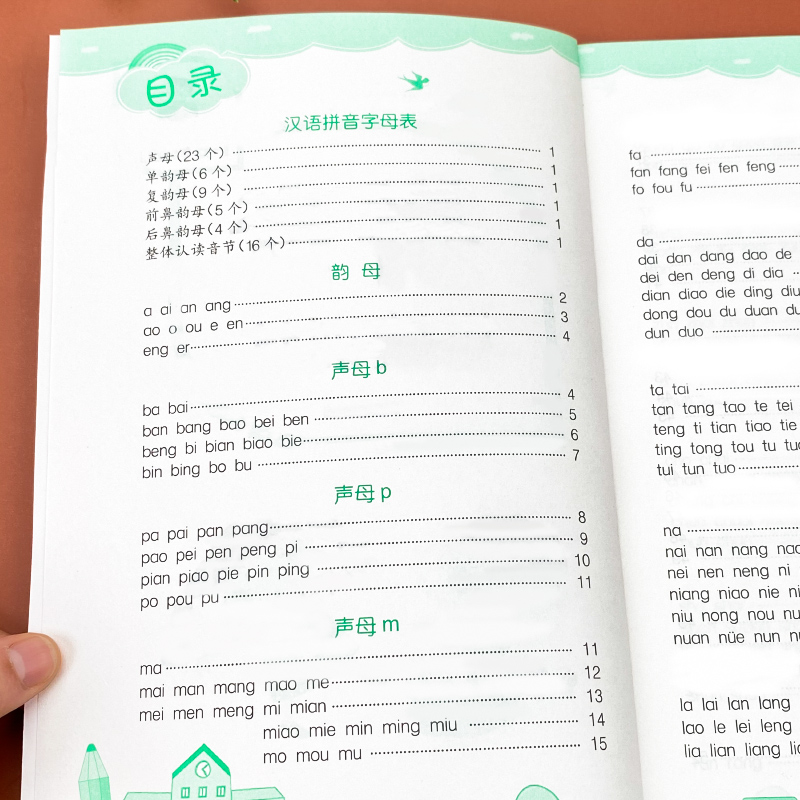 目录
汉语拼音字母表
声母(23 个) 1
单韵母(6 个) 1
复韵母(9 个) 1
前鼻韵母(5 个) 1
后鼻韵母(4 个) 1
整体认读音节(16 个) 1
韵 母
a ai an ang 2
ao o ou e en 3
eng er 4
声母 b
ba bai 4
ban bang bao bei ben 5
beng bi bian biao bie 6
bin bing bo bu 7
声母 p
pa pai pan pang 8
pao pei pen peng pi 9
pian piao pie pin ping 10
po pou pu 11
声母 m
ma 11
mai man mang mao me 12
mei men meng mi mian 13
miao mie min ming miu 14
mo mou mu 15
fa
fan fang fei fen feng
fo fou fu
da
dai dan dang dao de
dei den deng di dia
dian diao die ding diu
dong dou du duan
dun duo
ta tai
tan tang tao te tei
teng ti tian tiao tie
ting tong tou tu
tui tun tuo
na
nai nan nang
nei nen neng ni
niang niao nie
niu nong nou
nuan nüe nun
la lai lan lang
lao le lei leng
lia lian liang